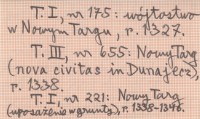 T. I, nr 175: wójtostwo
w Nowym Targu, r. 1327.
T. III, nr 655: Nowy Targ
(nova civitas in Dunajecz),
r. 1338.
T. I, nr 221: Nowy Targ
(uposażenie w grunty), r. 1335-1346.